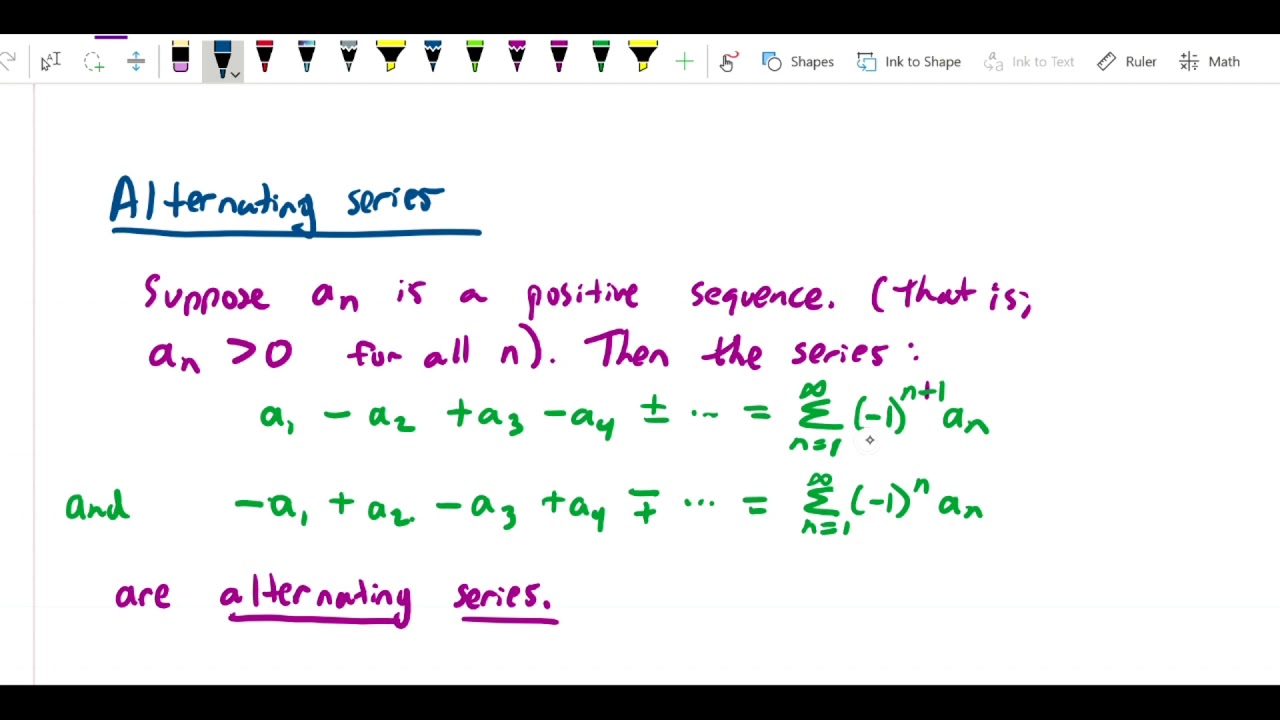 Shapes Ink to Shape Ink to Text Ruler Math
Alternating series
Suppose aₙ is a positive sequence. (That is,
aₙ > 0 for all n). Then the series:
a₁ - a₂ + a₃ - a₄ ± ... = ∑_{n=1}^{∞} (-1)^{n+1} aₙ
and -a₁ + a₂ - a₃ + a₄ ∓ ... = ∑_{n=1}^{∞} (-1)^n aₙ
are alternating series.